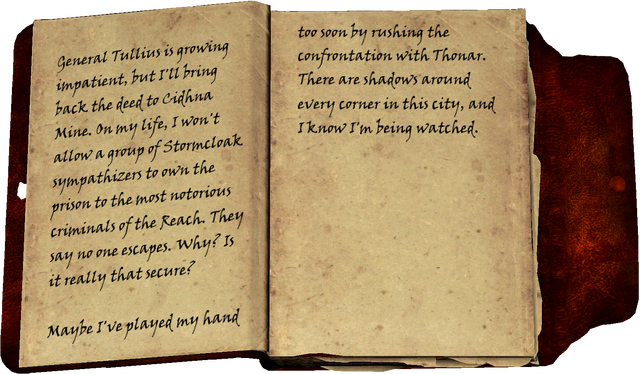 General Tullius is growing
impatient, but I'll bring
back the deed to Cidhna
Mine. On my life, I won't
allow a group of Stormcloak
sympathizers to own the
prison to the most notorious
criminals of the Reach. They
say no one escapes. Why? Is
it really that secure?
Maybe I've played my hand
too soon by rushing the
confrontation with Thonar.
There are shadows around
every corner in this city, and
I know I'm being watched.